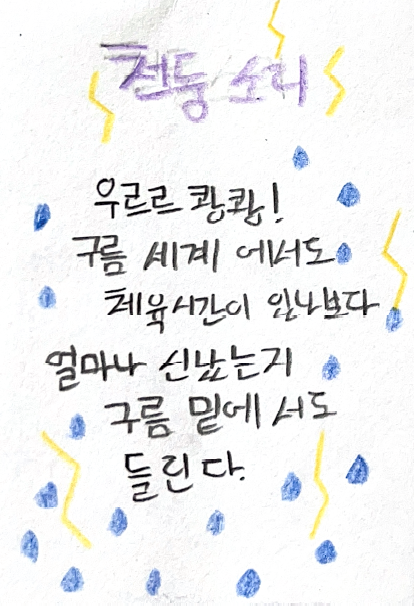 천둥 소리
우르르 쾅쾅!
구름 세계 에서도
체육시간이 있나보다
얼마나 신났는지
구름 밑에서도
들린다.